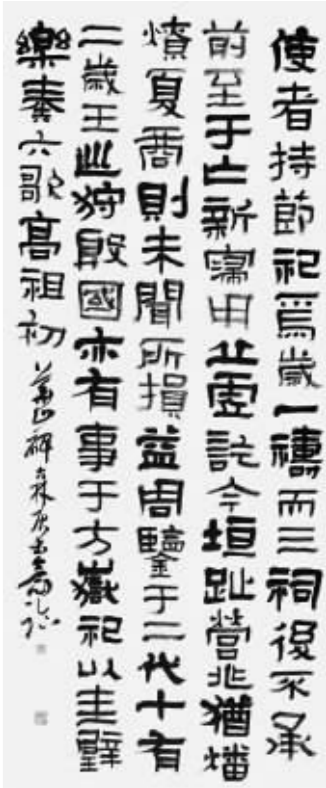 使者持節祀焉歲一禱而三祠後不承
前至于亡新寖用丘虛訖今垣趾營兆猶燔
燎夏商則未聞所損益周鑒于二代十有
二歲王巡狩殷國亦有事于方嶽祀以圭璧
樂奏六歌高祖初
華山碑